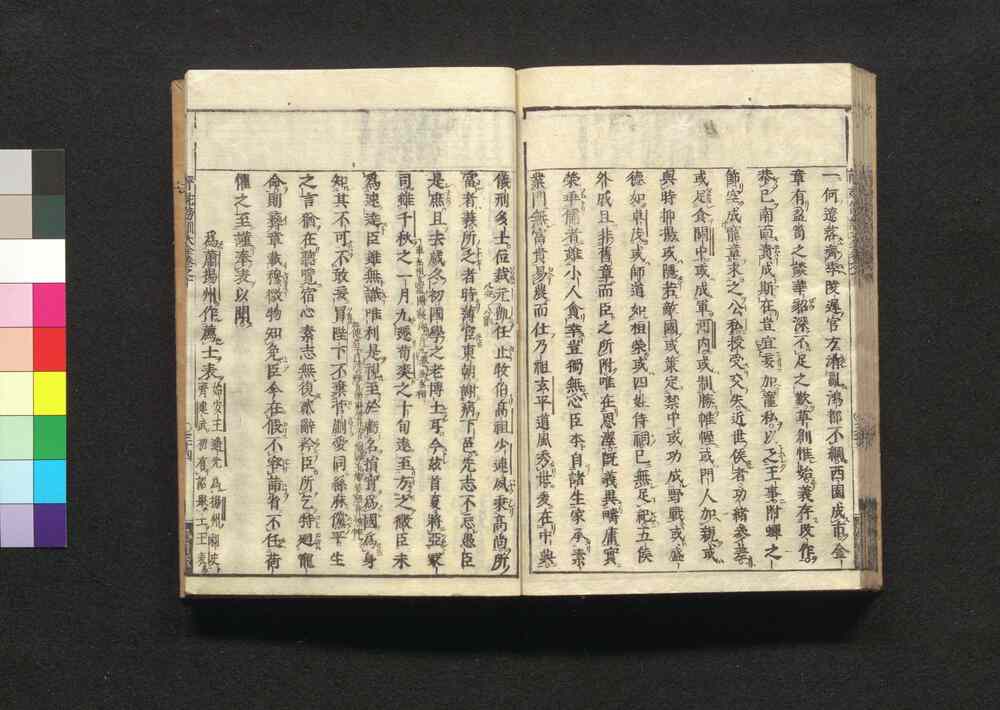 一何遼落齊季陵遲官方淆亂鴻都不綱西園成市金
章有盈笥之談華貂深不足之歎草創惟始義存改作
恭已南面責成斯在豈宜妄加寵私以乏王事附蟬之
飾空成寵章求之公私授受交失近世侯者功緒參差
或足食關中或成軍河内或制勝帷幄或門人加親或
與時抑揚或隱若敵國或策定禁中或功成野戰或盛
德如卓茂或師道如桓榮或四姓侍祠已無足紀五侯
外戚且非舊章而臣之所附唯在恩澤既義異疇庸實
榮乖儒者雖小人貪幸豈獨無心臣本自諸生家承素
業門無富貴易農而仕乃祖玄平道風秀世爰在中興
儀刑多士位裁元凱任止牧伯高祖少連夙秉高尚所
富者義所乏者時薄宦東朝謝病下邑先志不忘愚臣
是庶且去歲冬初國學之老博士耳今茲首夏將亞冢
司雖千秋之一月九遷荀爽之十旬遠至方之微臣未
爲速達臣雖無識唯利是視至於虧名損實爲國爲身
知其不可不敢妄冒陛下不棄菅蒯愛同絲麻儻平生
之言猶在聽覽宿心素志無復貳辭矜臣所乞特迴寵
命則彝章載穆微物知免臣今在假不容詣省不任荷
懼之至謹奉表以聞
爲蕭揚州作薦士表
始安王遙光爲揚州刺史
齊建武初有詔舉士王表